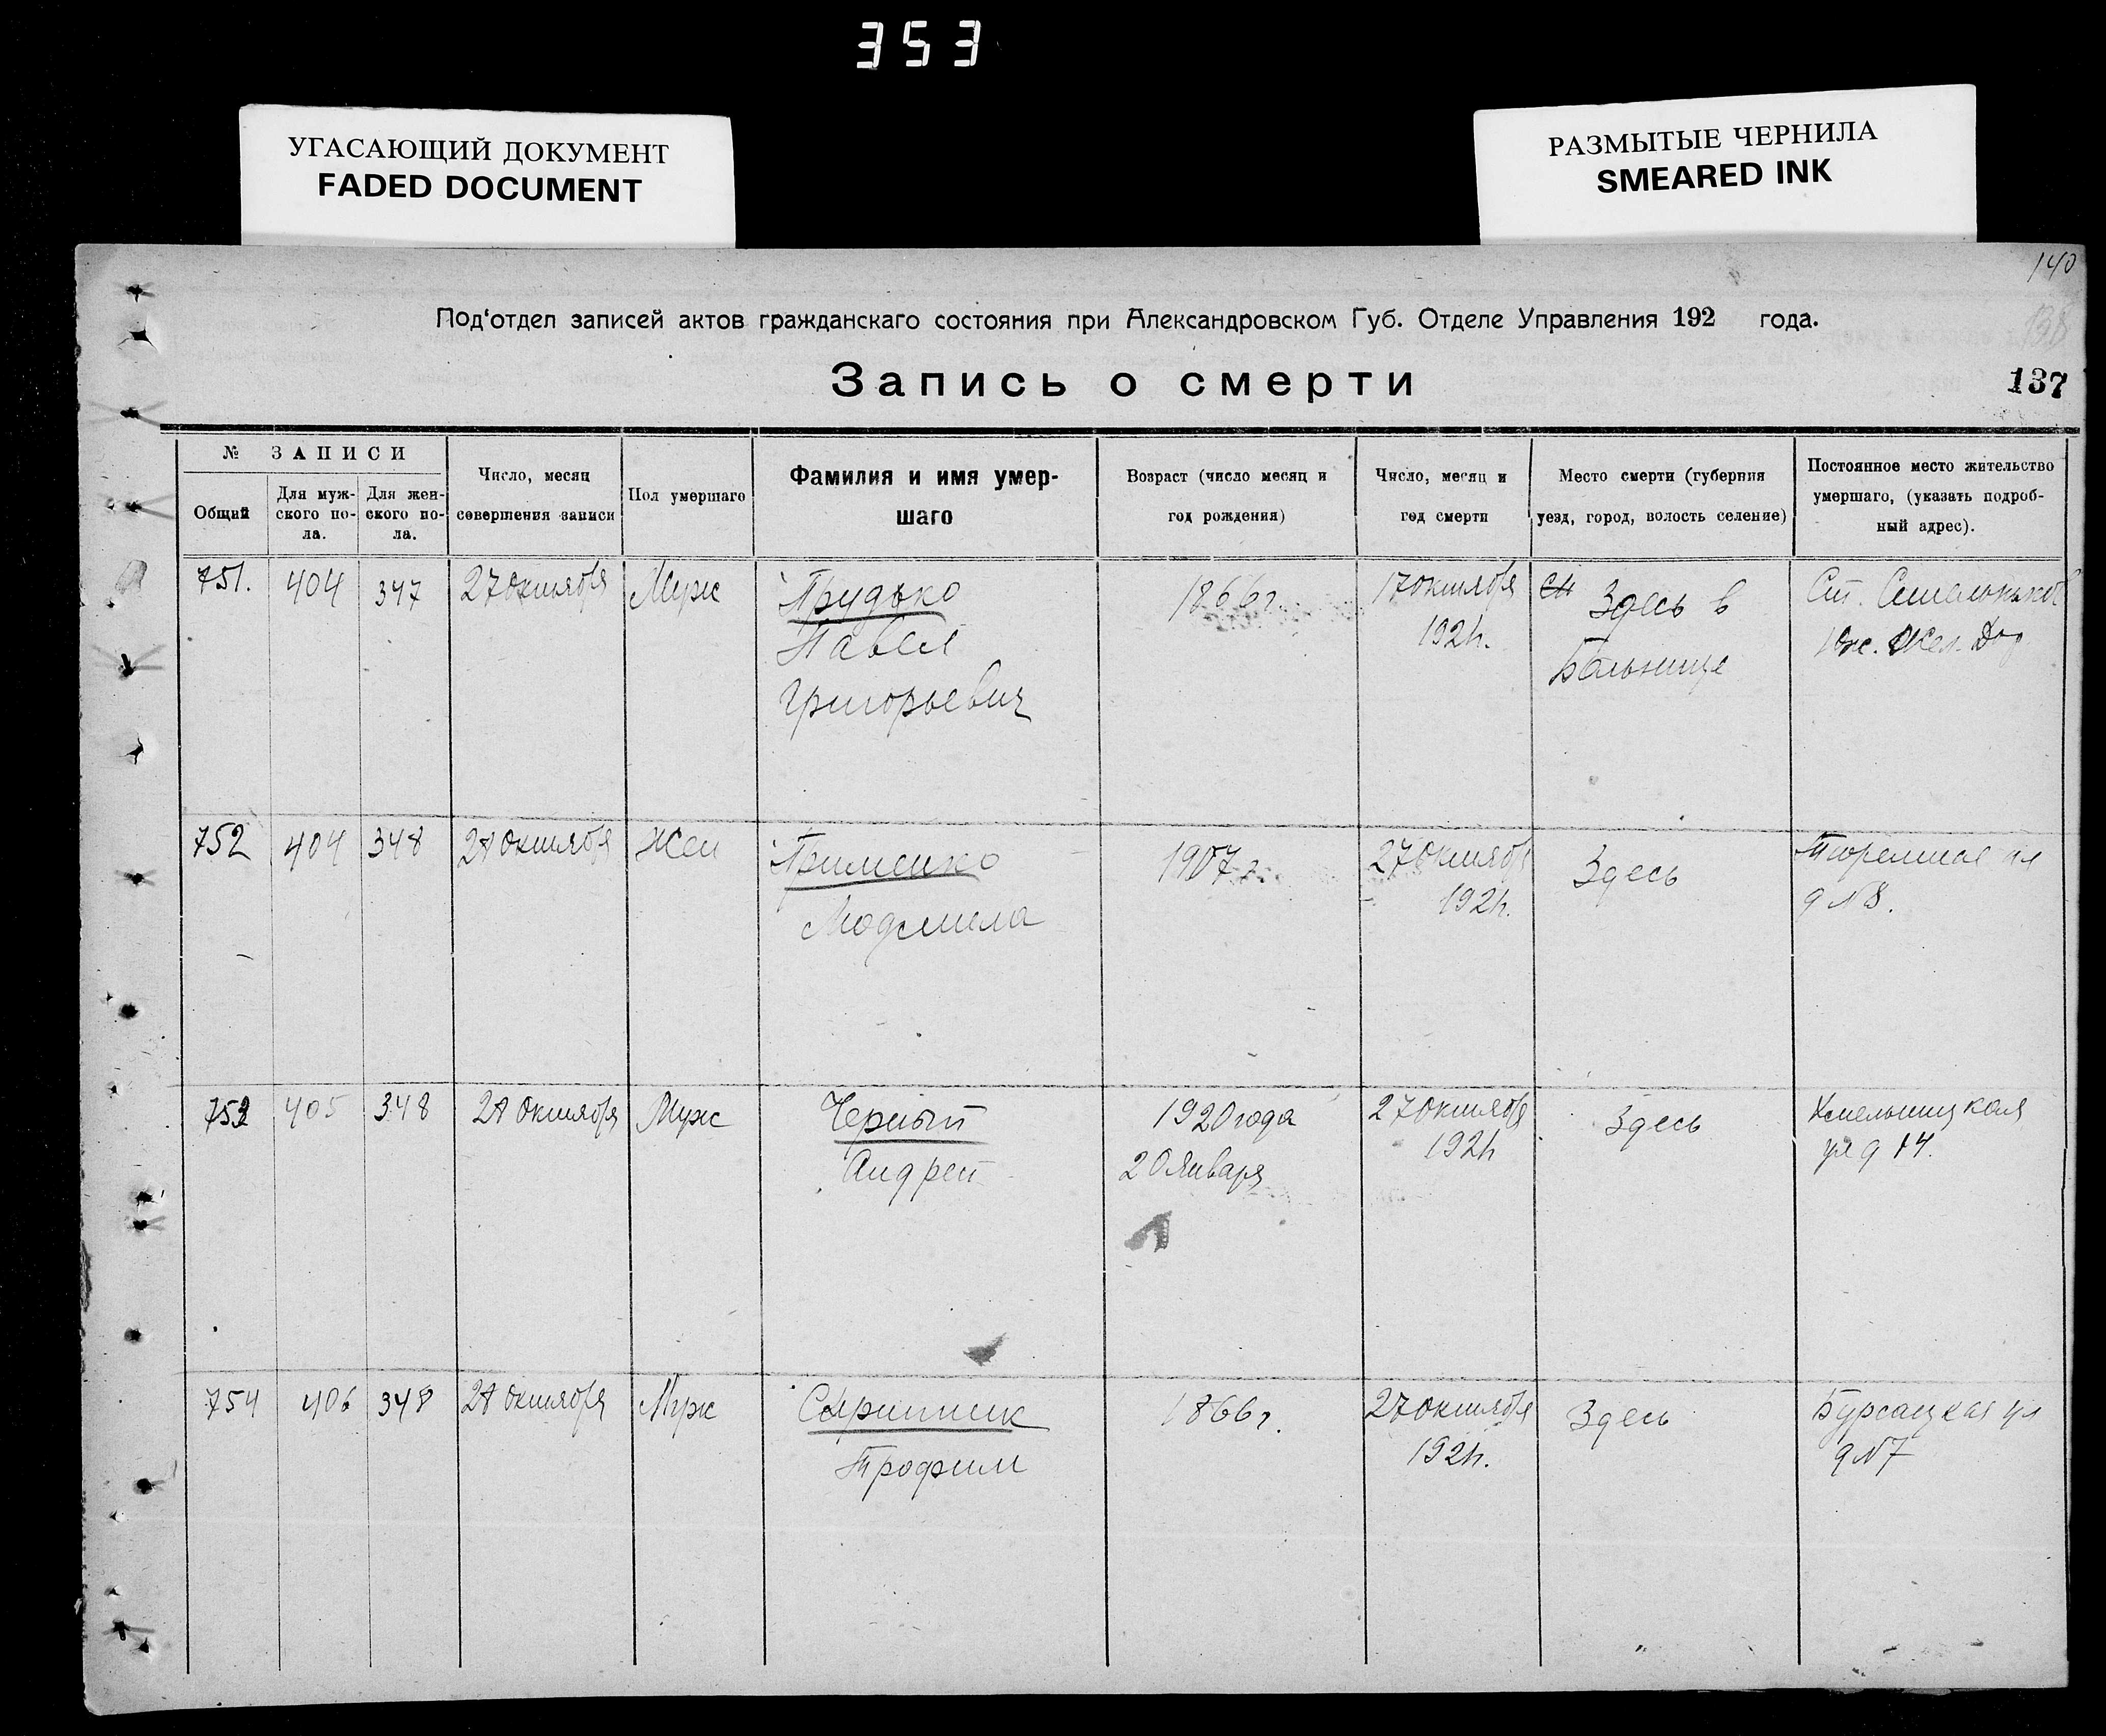 353
УГАСАЮЩИЙ ДОКУМЕНТ
FADED DOCUMENT
РАЗМЫТЫЕ ЧЕРНИЛА
SMEARED INK
140
138
Под'отдел записей актов гражданскаго состояния при Александровском Губ. Отделе Управления 192 года.
Запись о смерти
137
№ ЗАПИСИ
Общий
Для муж-
ского по-
ла.
Для жен-
ского по-
ла.
Число, месяц
совершения записи
Пол умершаго
Фамилия и имя умер-
шаго
Возраст (число месяц и
год рождения)
Число, месяц и
год смерти
Место смерти (губерния
уезд, город, волость селение)
Постоянное место жительство
умершаго, (указать подроб-
ный адрес).
751. 404 347 27 октября Муж Прудько 1866г. 17 октября Здесь в Ст.
Павел 1921г. Больнице Юж. Жел. Дор
Григорьевич
752 404 348 октября Жен 1907г. 27 октября Здесь Тюремная ул
Людмила 1921г. д №8.
753 405 348 октября Муж Черный 1920 года 27 октября Здесь Хмельницкая
Андрей 20 Января 1921г ул д 14.
754 406 348 октября Муж 1866г. 27 октября Здесь Бурсацкая ул
Трофим 1921г. д №7